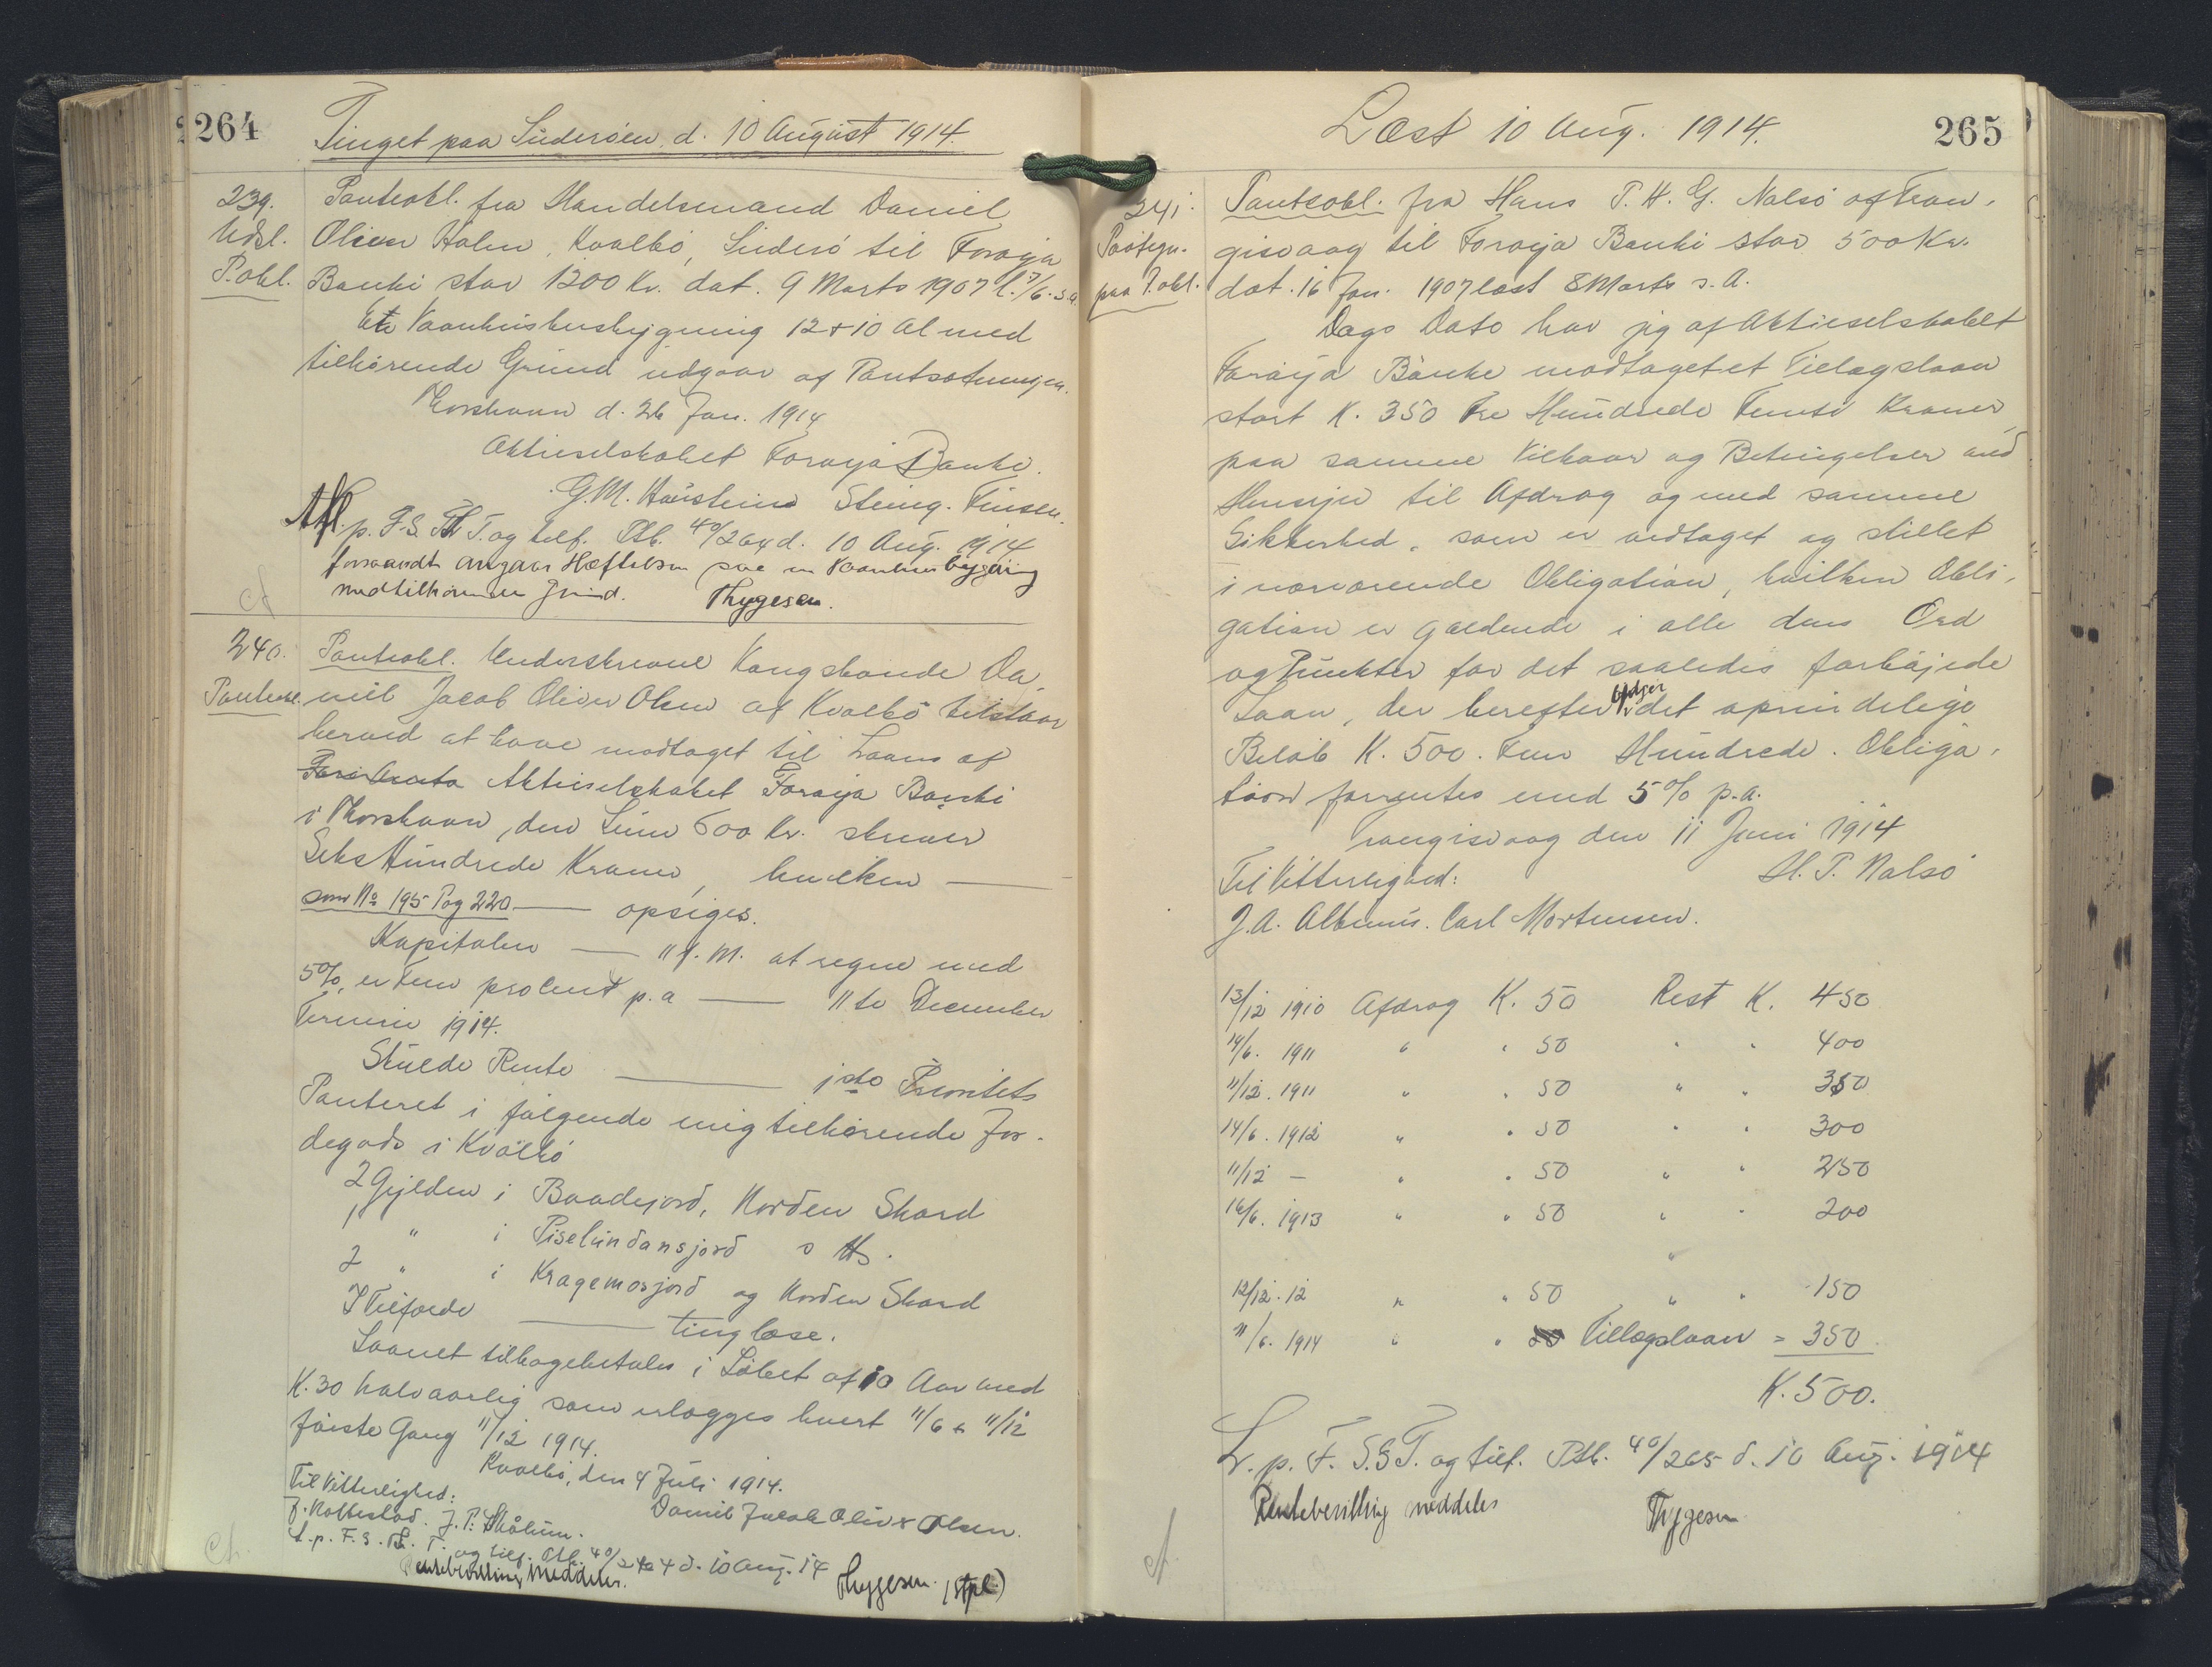 264
Tinget paa Süderöen, d. 10 August 1914.
239.
Udsl.
P.obl.
Panteobl. fra Handelsmand Daniel
Olsen Holm, Kvalbö, Süderö til Föroya
Banki stor 1300 Kr. dat. 9 Marts 1907 l. 17/6. s.a.
Et Vaanhusbygning 12 x 10 Al med
tilhörende Grund udgaar af Pantsætningen.
Thorshavn d. 26 Jan. 1914
Aktieselskabet Föroya Banki.
G.M. Haústeino Steing. Finsen.
Afl. p. F.S. Th. T. og tilf. Ptb. 40/264 d. 10 Aug. 1914
forsaavidt angaar Hæftelsen paa en Vaanhusbygning
med tilhörende Grund. Thygesen.
240.
Panteobl.
Panteobl. Underskrevne Kongsbonde Da-
niel Jacob Oliver Olsen af Kvalbö tilstaar
herved at have modtaget til Laans af
Aktieselskabet Föroya Banki
i Thorshavn, den Sum 600 Kr. skriver
Seks Hundrede Kroner, hvilken —
som No 195 Pag 220 — opsiges.
Kapitalen — 11 f. M. at regne med
5%, er Fem procent p.a — 11te December
Termin 1914.
Skulde Rente — 1ste Prioritets
Panteret i fölgende mig tilhörende Jor-
degods i Kvalbö
2 Gylden i Baadejord, Norden Skard
1 " i Piselundansjord s Hs.
2 " i Kragemosjord og Norden Skard
I Tilfælde — tinglæse.
Laanet tilbagebetales i Löbet af 10 Aar med
K. 30 halvaarlig som erlægges hvert 11/6 & 11/12
förste Gang 11/12 1914.
Kvalbö, den 4 Juli 1914.
Til Vitterlighed:
Daniel Jacob Oliver Olsen.
J. Nolsestad. J. P. Skålum.
L. p. F. S. Th. T. og tilf. Ptb. 40/264 d. 10 Aug. 14
Rentebevilling meddeles. Thygesen. (Stpl.)
Læst 10 Aug. 1914.
265
241.
Paategn.
paa P.obl.
Panteobl. fra Hans P. H. G. Nalsö af Tran-
gisvaag til Föroya Banki stor 500 Kr.
dat. 16 Jan. 1907 læst 8 Marts s. A.
Dags Dato har jeg af Aktieselskabet
Föroya Banke modtaget et Tillægslaan
stort K. 350 Tre Hundrede Femti Kroner,
paa samme Vilkaar og Betingelser med
Hensyn til Afdrag og med samme
Sikkerhed, som er vedtaget og stillet
i nærværende Obligation, hvilken Obli-
gation er gældende i alle dens Ord
og Punkter for det saaledes forhöjede
Laan, der herefter udgör det oprindelige
Belöb K. 500. Fem Hundrede. Obliga-
tion forrentes med 5% p.a.
Trangisvaag den 11 Juni 1914
Til Vitterlighed: H. P. Nalsö
J. A. Albinus. Carl Mortensen.
13/12 1910 Afdrag K. 50 Rest K. 450
14/6. 1911 " " 50 " " 400
11/12. 1911 " " 50 " " 350
14/6. 1912 " " 50 " " 300
11/12 — " " 50 " " 250
16/6. 1913 " " 50 " " 200
"
12/12. 12 " " 50 " " 150
11/6. 1914 " " Tillægslaan = 350
K. 500.
L. p. F. S. S T. og tilf. Ptb. 40/265 d. 10 Aug. 1914
Rentebevilling meddeles Thygesen